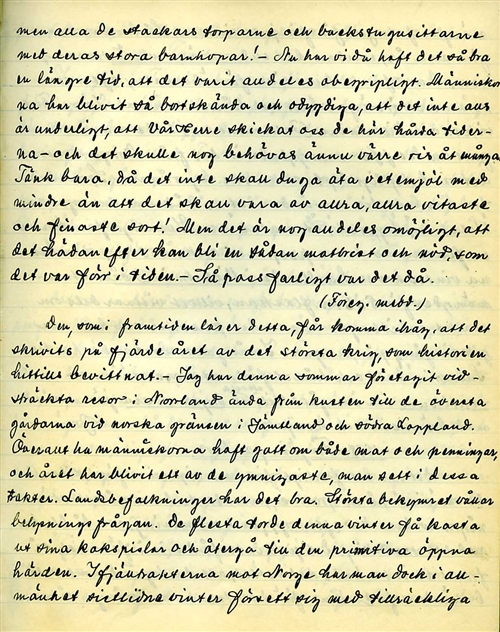 men alla de stackars torparne och backstugusittarne
med deras stora barnhopar! - Nu har vi då haft det så bra
en längre tid, att det varit alldeles obegripligt. Människor
na har blivit så bortskända och odygdiga, att det inte alls
är underligt, att Vår Herre skickat oss de här hårda tider-
na - och det skulle nog behövas ännu värre ris åt många.
Tänk bara, då det inte skall duga äta vetemjöl med
mindre än att det skall vara av allra, allra vitaste
och finaste sort! Men det är nog alldeles omöjligt, att
det hädanefter kan bli en sådan matbrist och nöd, som
det var förr i tiden. - Så pass farligt var det då.
(Föreg. medd.)
Den, som i framtiden läser detta, får komma ihåg, att det
skrivits på fjärde året av det största krig, som historien
hittills bevittnat. - Jag har denna sommar företagit vid-
sträckta resor i Norrland ända från kusten till de översta
gårdarna vid norska gränsen i Jämtland och södra Lappland.
Överallt ha människorna haft gott om både mat och penningar,
och året har blivit ett av de ymnigaste, man sett i dessa
trakter. Landsbefolkningen har det bra. Största bekymret vållar
belysningsfrågan. De flesta torde denna vinter få kasta
ut sina kokspislar och återgå till den primitiva öppna
härden. I fjälltrakterna mot Norge har man dock i all-
mänhet sistlidne vinter försett sig med tillräckliga